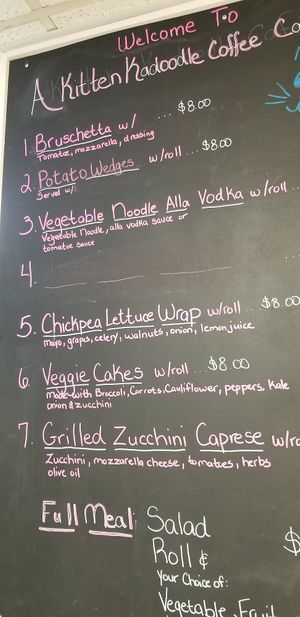 Welcome To
A Kitten Kadoodle Coffee Co
1. Bruschetta w/ ... $8.00
Tomatoe, mozzarella, dressing
2. Potato Wedges w/roll ... $8.00
Served w/:
3. Vegetable Noodle Alla Vodka w/roll ..
Vegetable Noodle, alla vodka sauce or
tomatoe sauce
4.
5. Chickpea Lettuce Wrap w/roll ... $8.00
mayo, grapes, celery, walnuts, onion, lemon juice
6. Veggie Cakes w/roll ... $8.00
made with Broccoli, Carrots, Cauliflower, peppers, Kale
onion & zucchini
7. Grilled Zucchini Caprese w/ro
Zucchini, mozzarella cheese, tomatoes, herbs
olive oil
Full Meal: Salad
Roll & $
Your Choice of:
Vegetable, Fruit